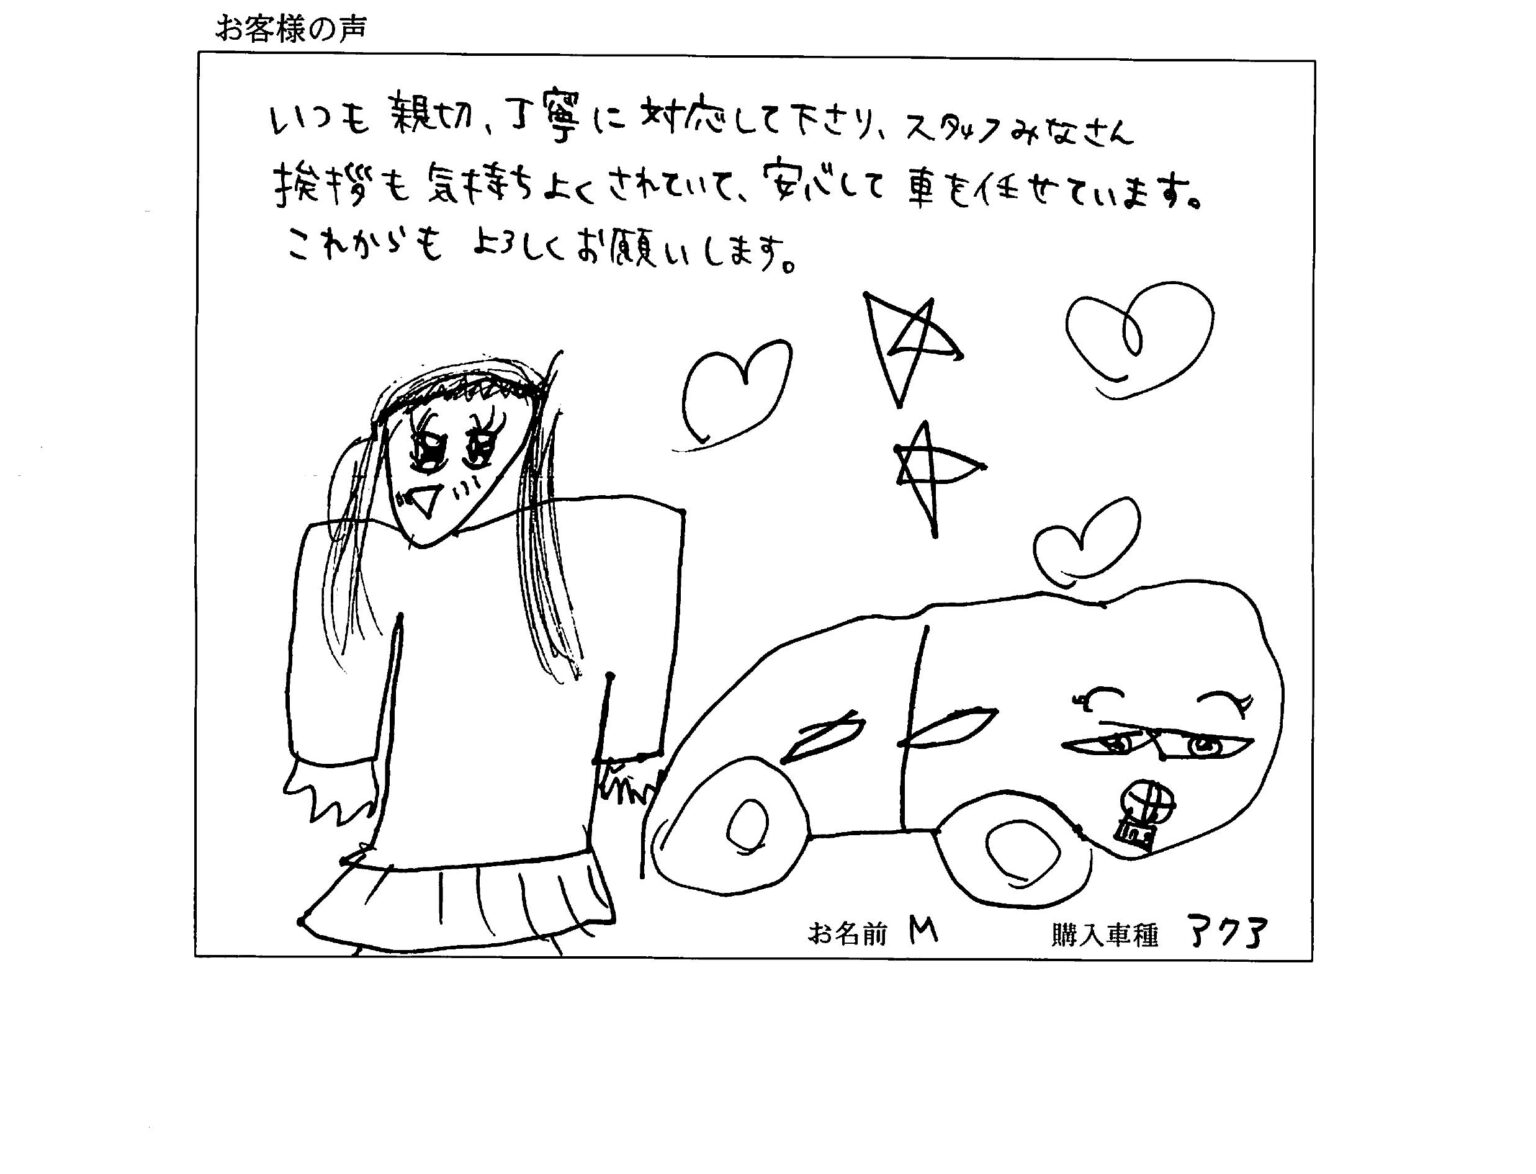 お客様の声
いつも親切、丁寧に対応して下さり、スタッフみなさん
挨拶も気持ちよくされていて、安心して車を任せています。
これからもよろしくお願いします。
お名前 M 購入車種 アクア